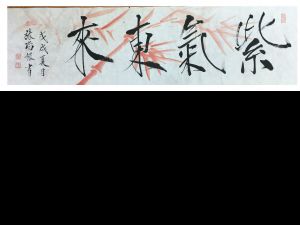 紫氣東來
戊戌夏月